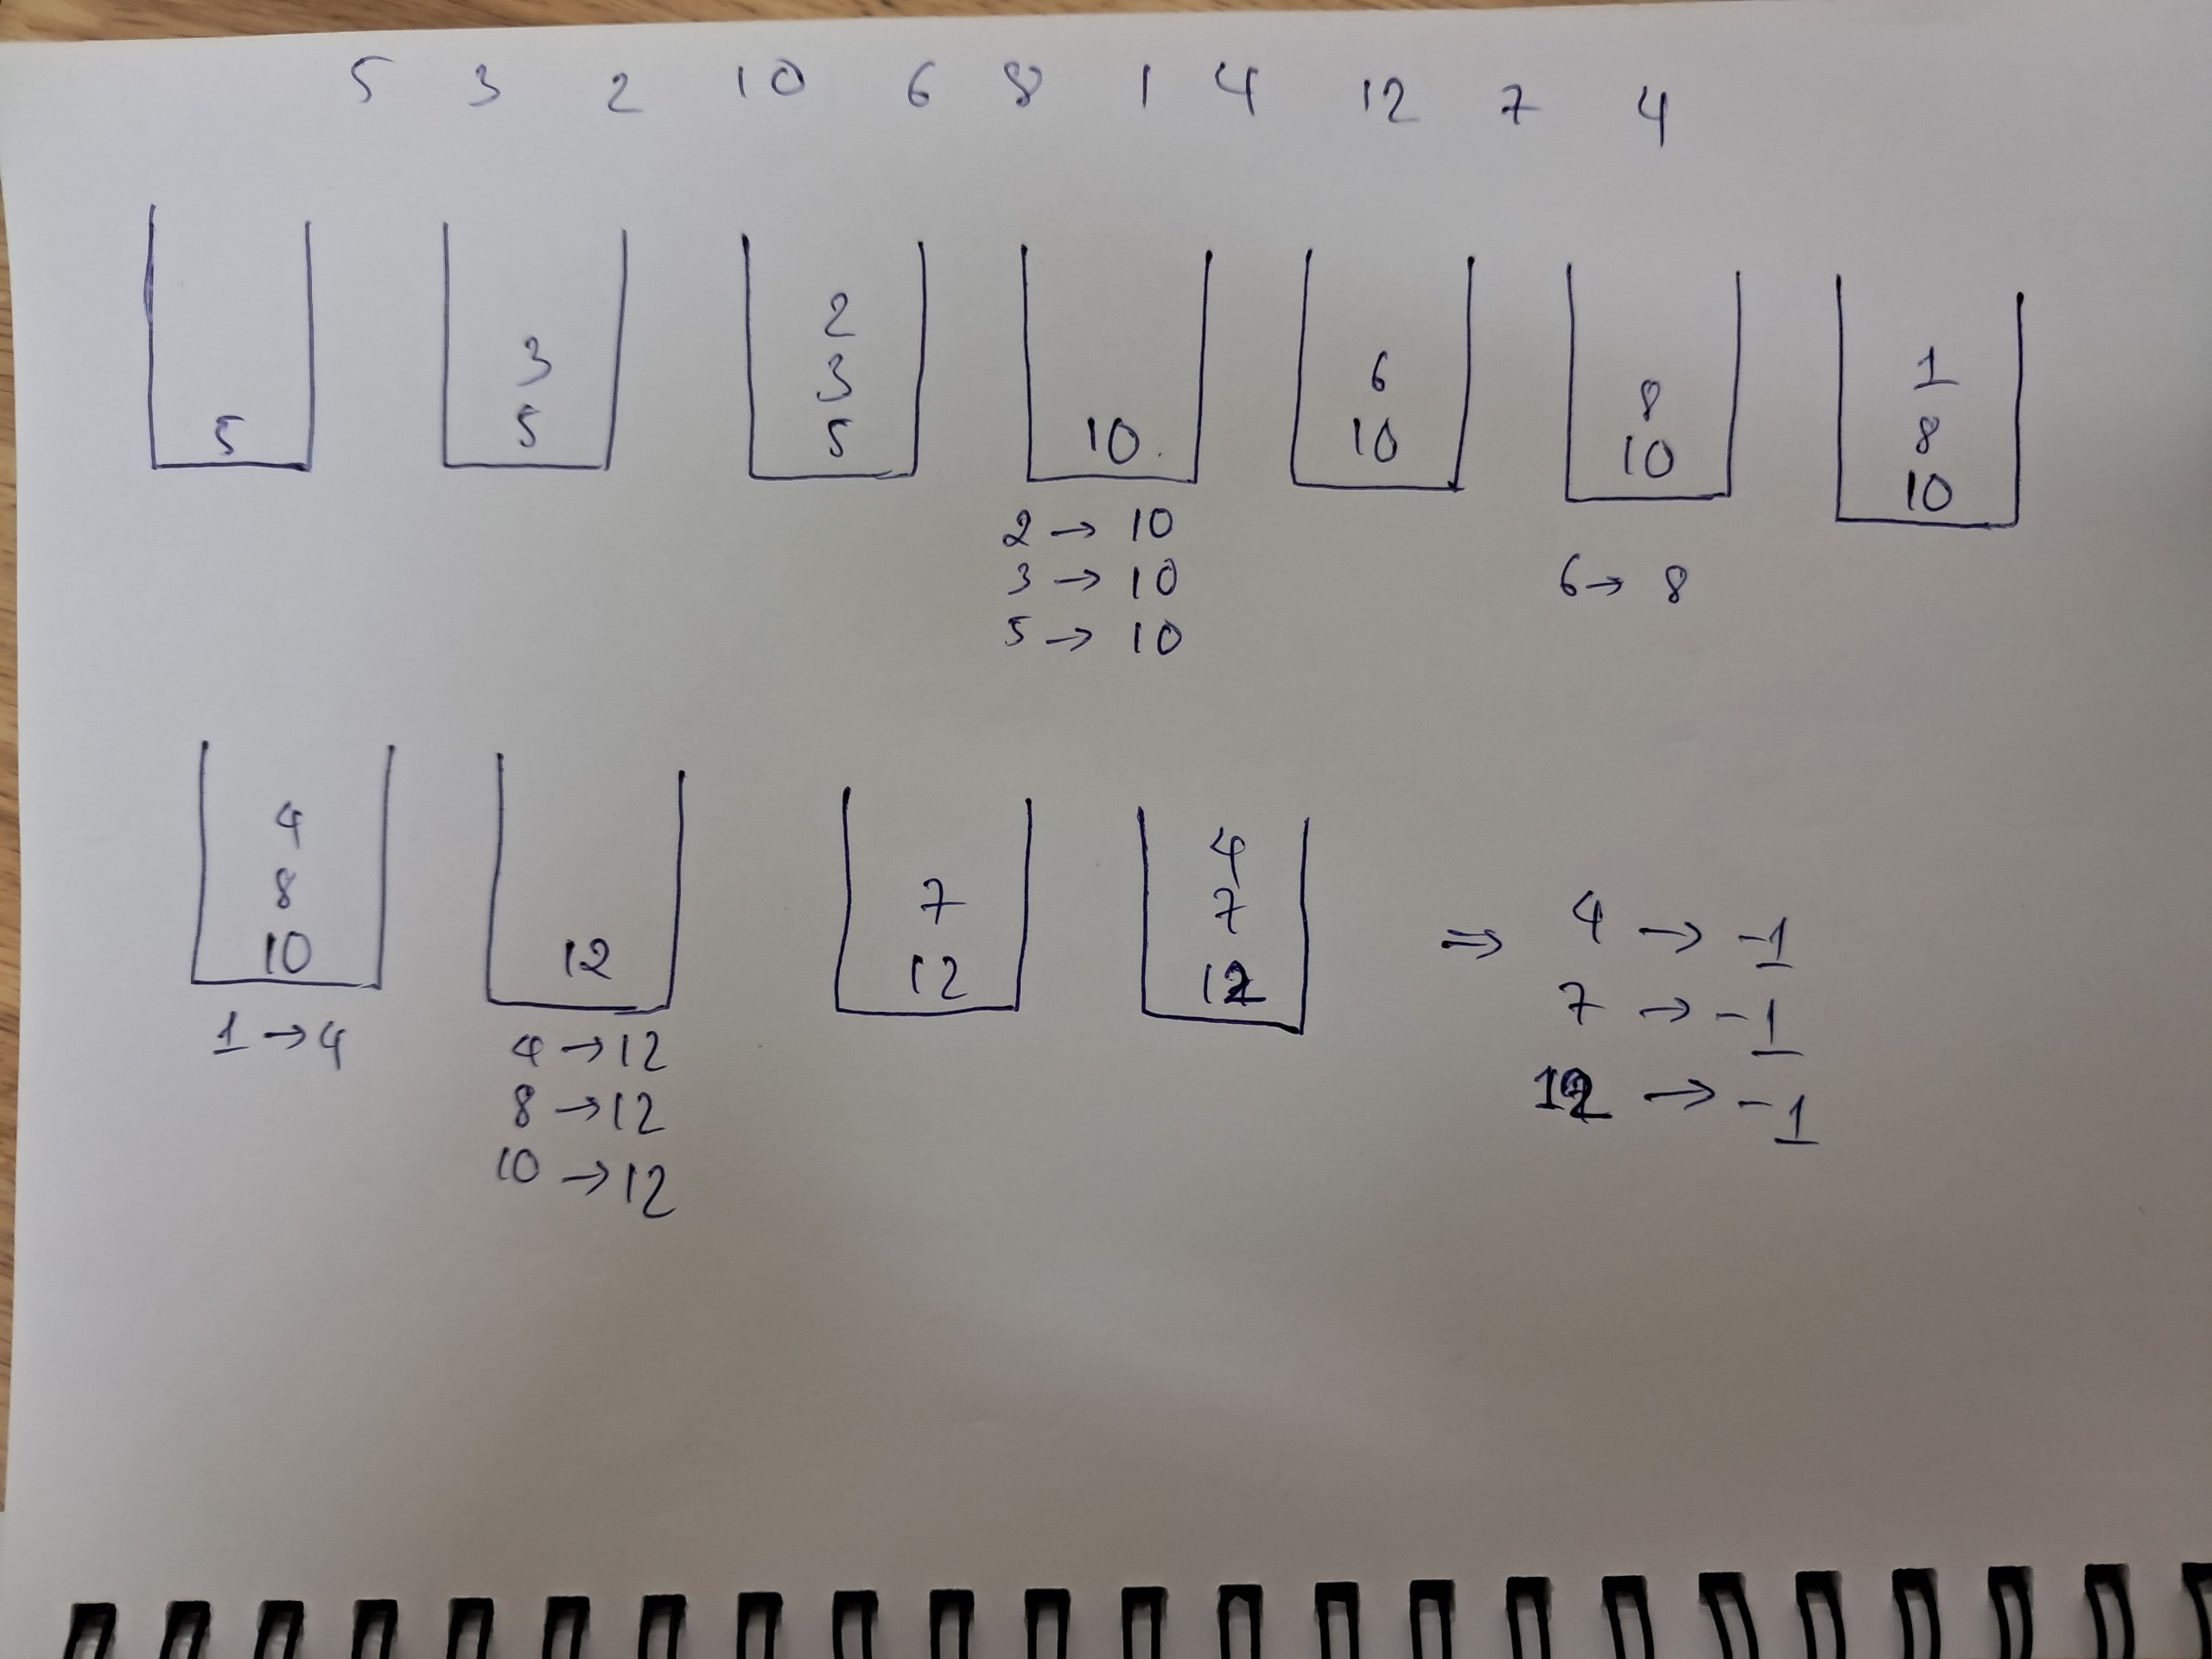 5 3 2 10 6 8 1 4 12 7 4
5
3
5
2
3
5
10
2 → 10
3 → 10
5 → 10
6
10
8
10
6 → 8
1
8
10
4
8
10
1 → 4
12
4 → 12
8 → 12
10 → 12
7
12
4
7
12
⇒ 4 → -1
7 → -1
12 → -1